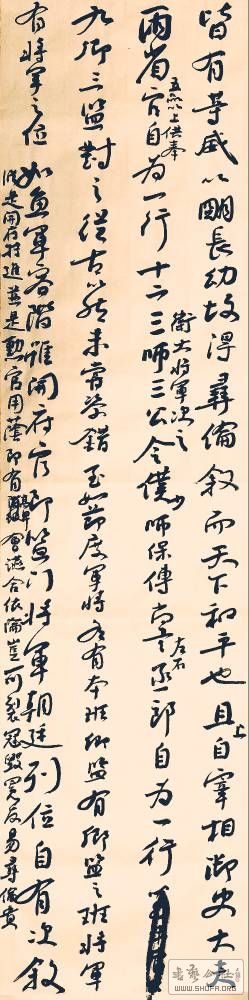 皆有等威以明長幼故得彝倫敘而天下和平也且上自宰相御史大夫
兩省五品以上供奉官自為一行十二衛大將軍次之三師三公令僕少師保傅尚書左右丞郎自為一行
九卿三監對之從古以然未嘗參錯至如節度軍將各有本班卿監有卿監之班將軍
有將軍之位如魚軍容階雖開府官即監門將軍朝廷列位自有次敘
縱是開府特進並是勳官用蔭即有高卑會讌合依倫豈可裂冠毀冕反易彝倫貴
WWW.SHUFA.ORG